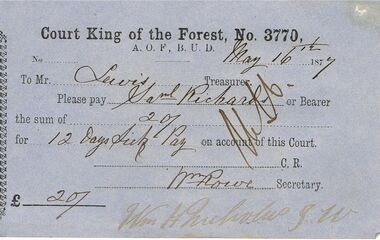 Court King of the Forest, No. 3770,
A. O. F., B. U. D.
No. May 16th 1877
To Mr. Lewis Treasurer.
Please pay Saml Richards or Bearer
the sum of 20/
for 12 Days Sick Pay on account of this Court.
C. R.
Wm Rowe Secretary.
£ 20/
Wm H Nicholas J. W